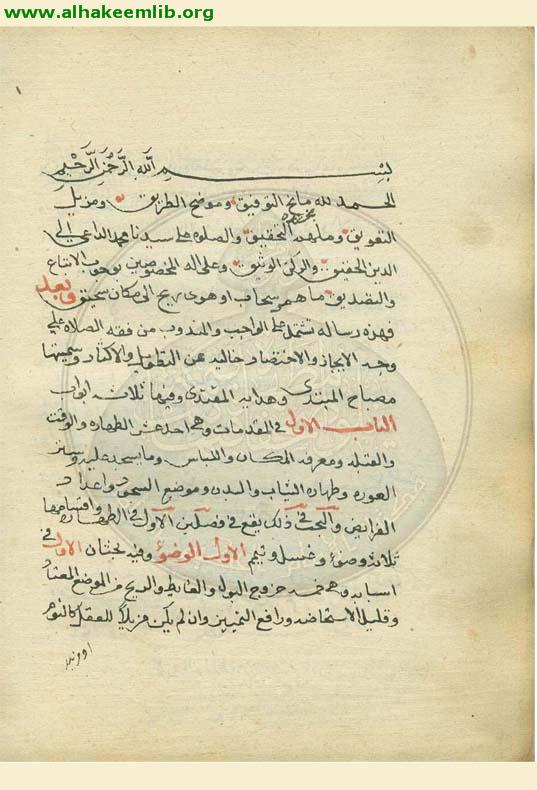 www.alhakeemlib.org
بسم الله الرحمن الرحيم
الحمد لله مانح التوفيق وموضح الطريق ومزيل
التعويق وملهم التحقيق والصلوه على سيدنا محمد الداعى الى
الدين الحقيق والركن الوثيق وعلى اله المخصوصين بوجوب الاتباع
والتصديق ما همر سحاب او هوى ريح الى مكان سحيق وبعد
فهذه رساله تشتمل على الواجب والمندوب من فقه الصلاه على
وجه الايجاز والاختصار خاليه عن التطويل والاكثار وسميتها
مصباح المبتدى وهدايه المقتدى وفيها ثلاثه ابواب
الباب الاول فى المقدمات وهى احد عشر الطهاره والوقت
والقبله ومعرفه المكان واللباس وما يسجد عليه وستر
العوره وطهاره الثياب والبدن وموضع السجود واعداد
الفرايض والبحث فى ذلك يقع فى فصلين الاول فى الطهاره واقسامها
ثلاثه وضوء وغسل وتيمم الاول الوضوء وفيه بحثان الاول فى
اسبابه وهى خمسه خروج البول والغايط والريح من الموضع المعتاد
وقليل الاستحاضه ورافع التمييز وان لم يكن مزيلا للعقل كالنوم